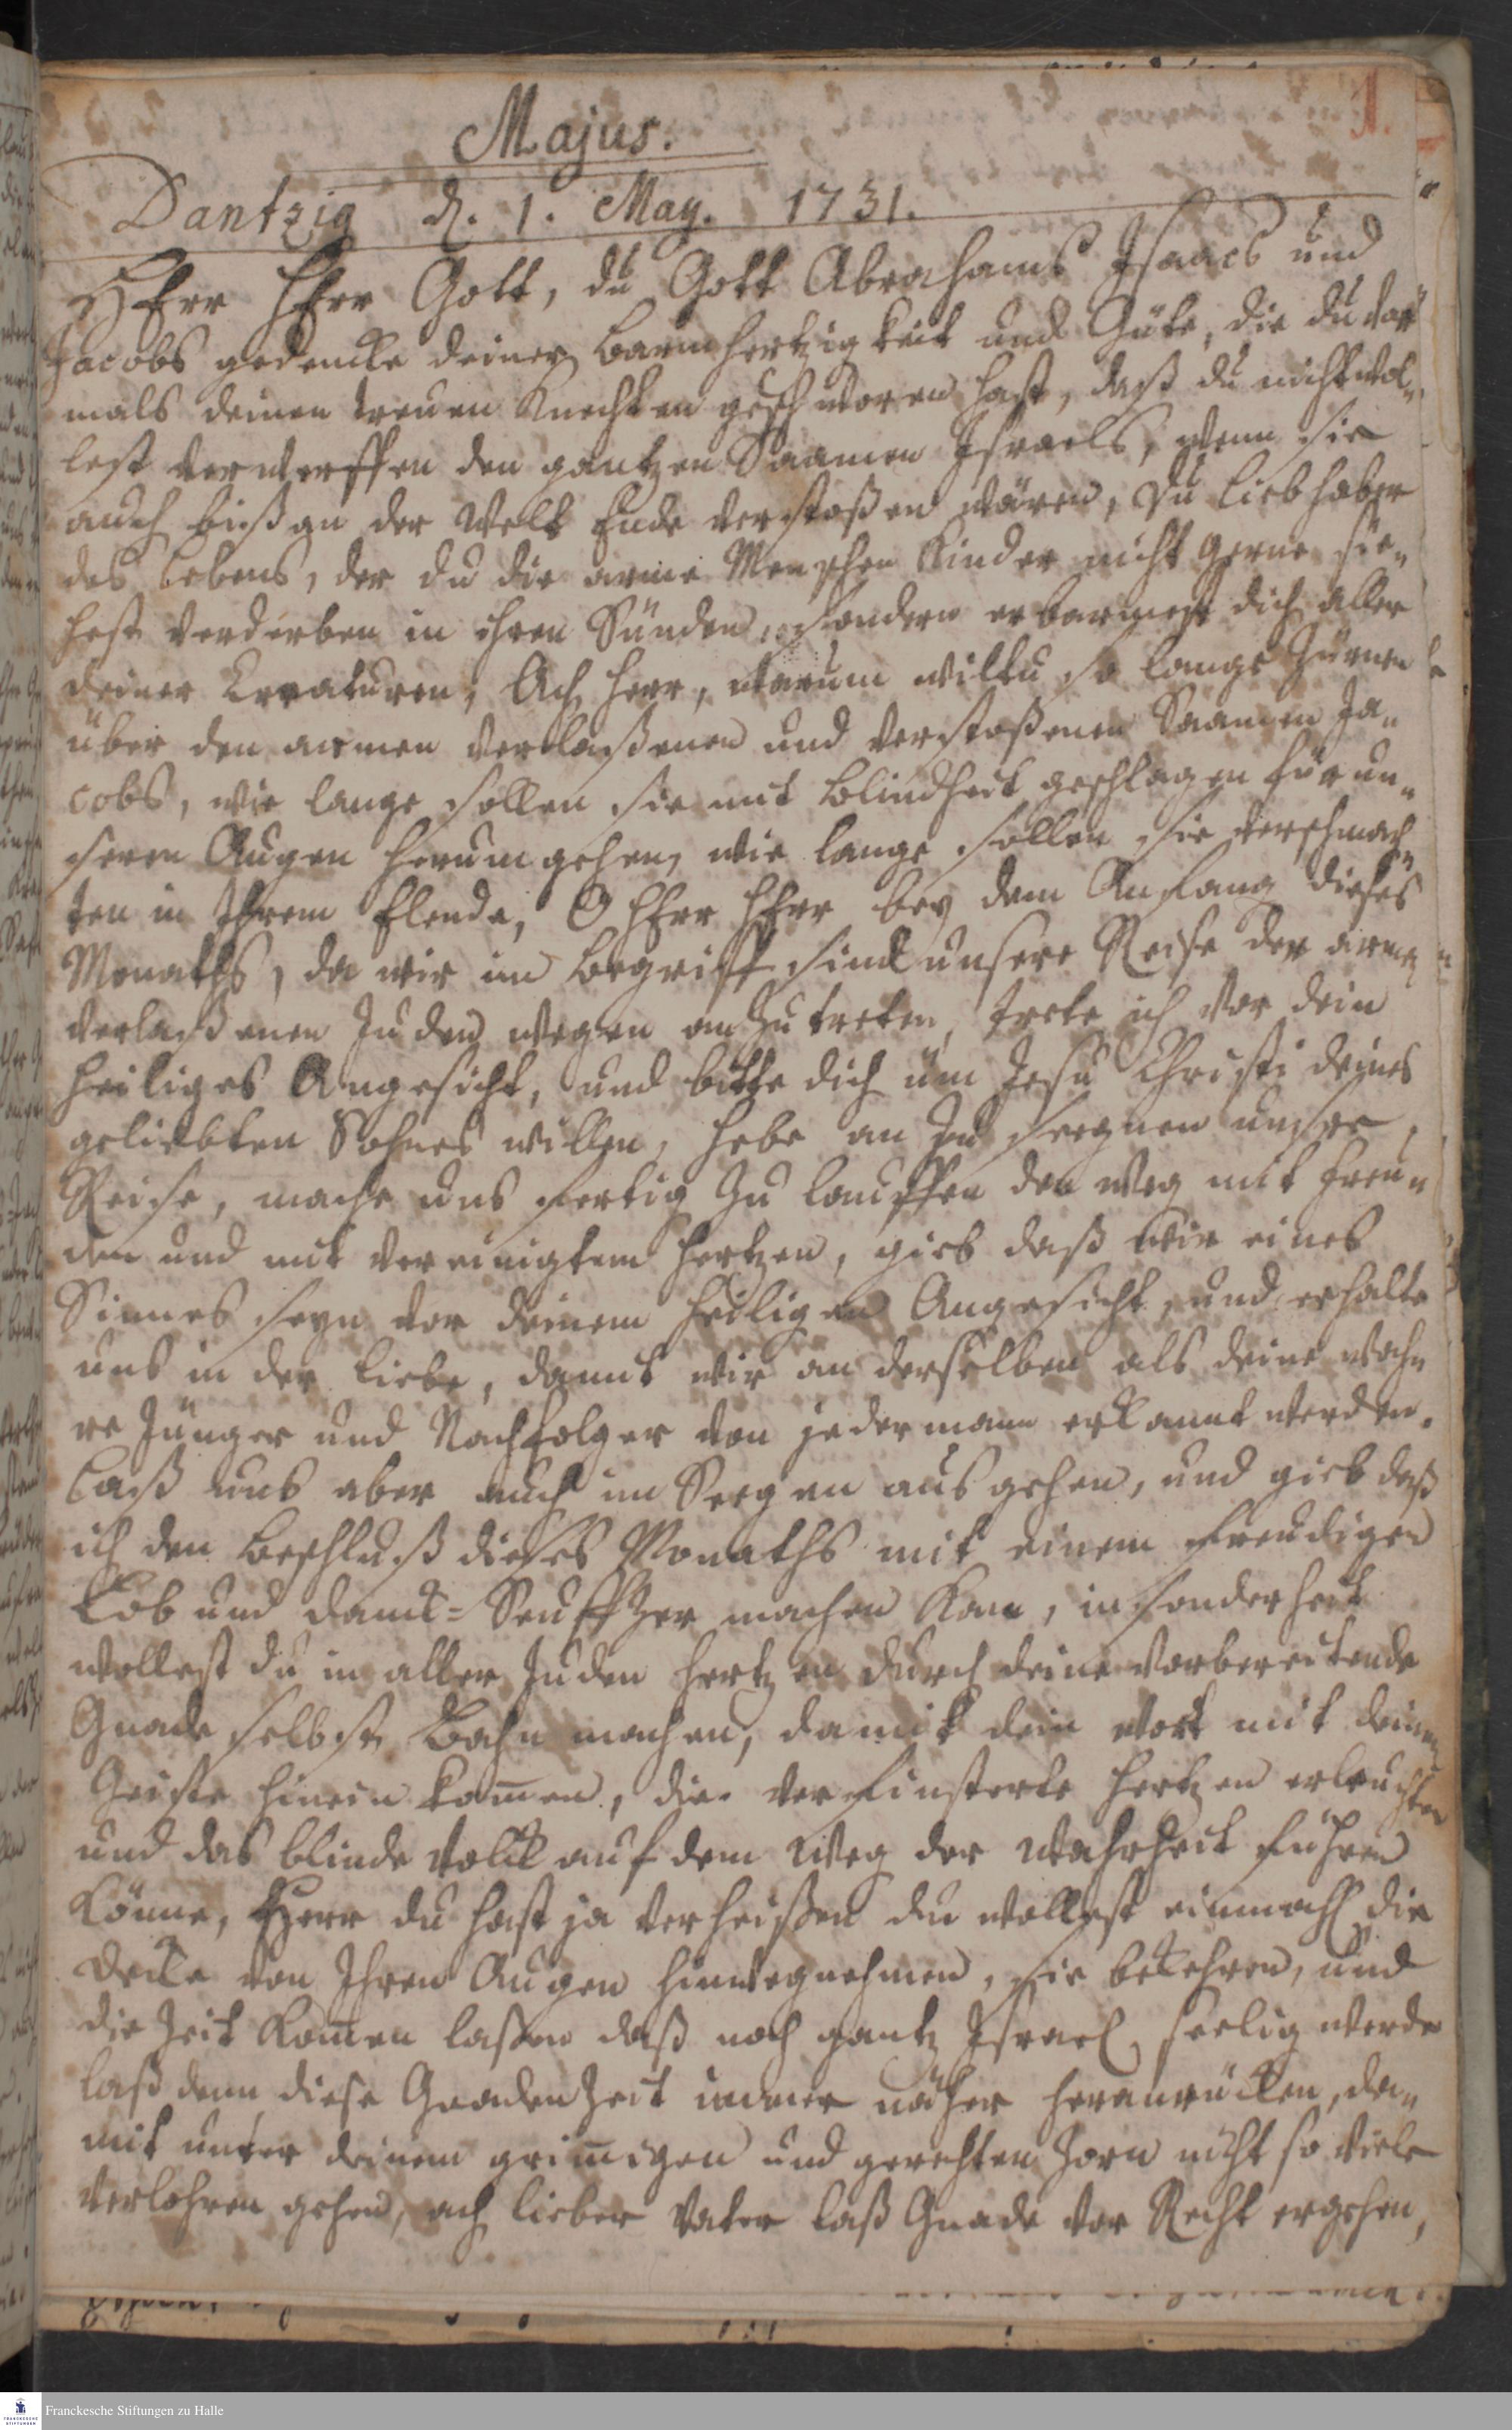 1.
Majus.
Dantzig d. 1. May. 1731.
HErr HErr Gott, du Gott Abrahams Isaacs und
Jacobs gedencke deiner Barmhertzigkeit und Güte, die du vor
mals deinen treuen Knechten geschworen hast, daß du nicht wol„
lest verwerffen den gantzen Saamen Israels, wenn sie
auch biß an der Welt Ende verstoßen wären, Du Liebhaber
des Lebens, der du die arme Menschen Kinder nicht gerne sie„
hest verderben in ihren Sünden, sondern erbarmest dich aller
deiner Creaturen, Ach Herr, warum wiltu so lange Zürnen
über den armen verlaßenen und verstoßenen Saamen Ja„
cobs, wie lange sollen sie mit Blindheit geschlagen für un„
sern Augen herumgehen, wie lange sollen sie verschmach„
ten in Ihrem Elende, O HErr HErr bey dem Anfang dieses
Monaths, da wir im Begriff sind unsere Reise der armen
verlaßenen Juden wegen anzutreten, trete ich vor dein
heiliges Angesicht, und bitte dich um Jesu Christi deines
geliebten Sohnes willen, hebe an zu seegnen unsre
Reise, mache uns fertig zu lauffen den Weg mit Freu„
den und mit vereinigtem Hertzen, gieb daß wir eines
Sinnes seyn vor deinem heiligen Angesicht, und erhalte
uns in der Liebe, damit wir an derselben als deine wah„
re Jünger und Nachfolger von jedermann erkannt werden.
Laß uns aber auch im Seegen ausgehen, und gieb daß
ich den Beschluß dieses Monaths mit einem freudigen
Lob und Danck= Seuffzer machen kan, insonderheit
wollest du in aller Juden Hertzen durch deine vorbereitende
Gnade selbst Bahn machen, damit dein Wort mit deinem
Geiste hinein kom̅en, die verfinsterte Hertzen erleuchten
und das blinde Volck auf dem Weg der Wahrheit führen
könne, Herr du hast ja verheißen du wollest einmahl die
Decke von Ihren Augen hinwegnehmen, sie bekehren, und
die Zeit kom̅en laßen daß noch gantz Israel seelig werde
laß denn diese Gnaden Zeit immer näher heranrücken, da„
mit unter deinem grim̅igen und gerechten Zorn nicht so viele
verlohren gehen, ach lieber Vater laß Gnade vor Recht ergehen,
Franckesche Stiftungen zu Halle